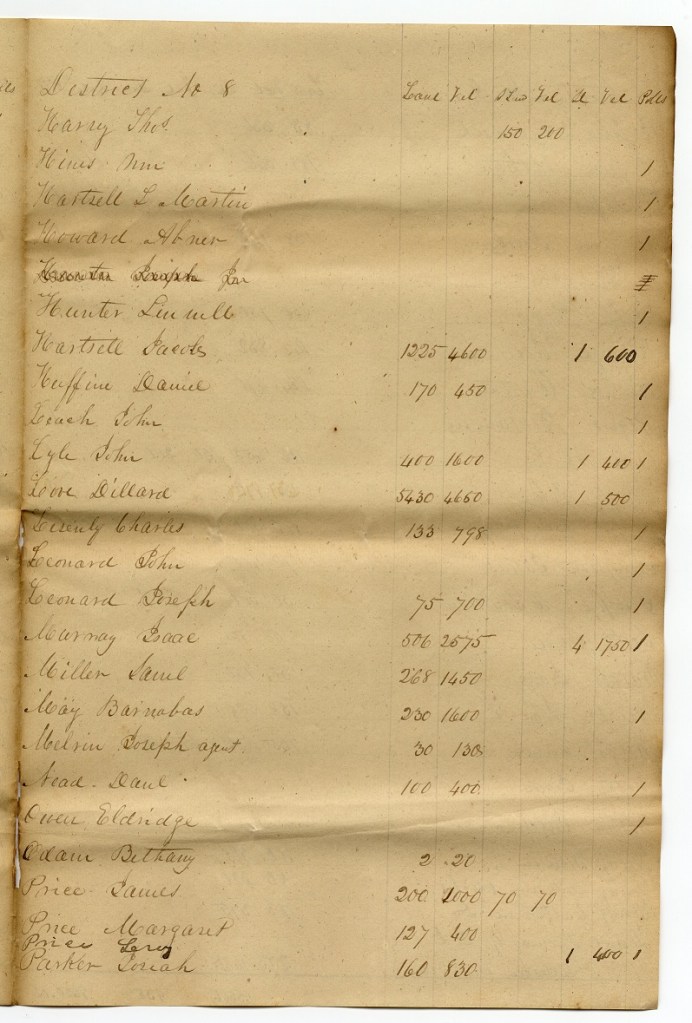 District No 8 Land Vel Vel Vel Polls
Harry Thos. 150 200
Wm 1
Hartsell L Martin 1
Howard Abner 1
Joseph Jnr
Hunter 1
Hartsell Jacob 1225 4600 1 600
Huffine Daniel 170 450 1
Leach John 1
Lyle John 400 1600 1 400 1
Love Dillard 5430 4650 1 500
Charles 133 798 1
Leonard John 1
Leonard Joseph 75 700 1
Murray Isaac 506 2575 4 1750 1
Miller Saml 268 1450
May Barnabas 230 1600 1
Melvin Joseph agent 30 130
Nead Danl 100 400 1
Owen Eldridge 1
Odam Bethany 2 20
Price James 200 2000 70 70
Price Margaret 127 400
Price Levy
Parker Josiah 160 830 1 400 1